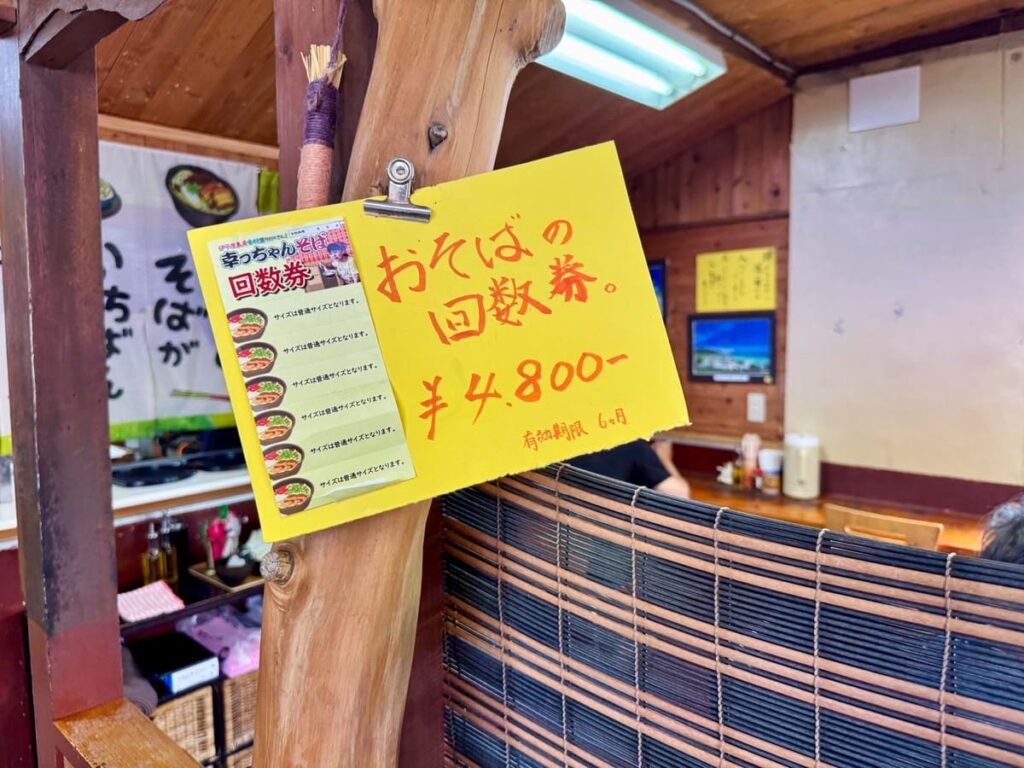 幸っちゃんそば
回数券
サイズは普通サイズとなります。
サイズは普通サイズとなります。
サイズは普通サイズとなります。
サイズは普通サイズとなります。
サイズは普通サイズとなります。
サイズは普通サイズとなります。
おそばの
回数券。
¥4,800-
有効期限 6ヶ月
そばが
いちばん